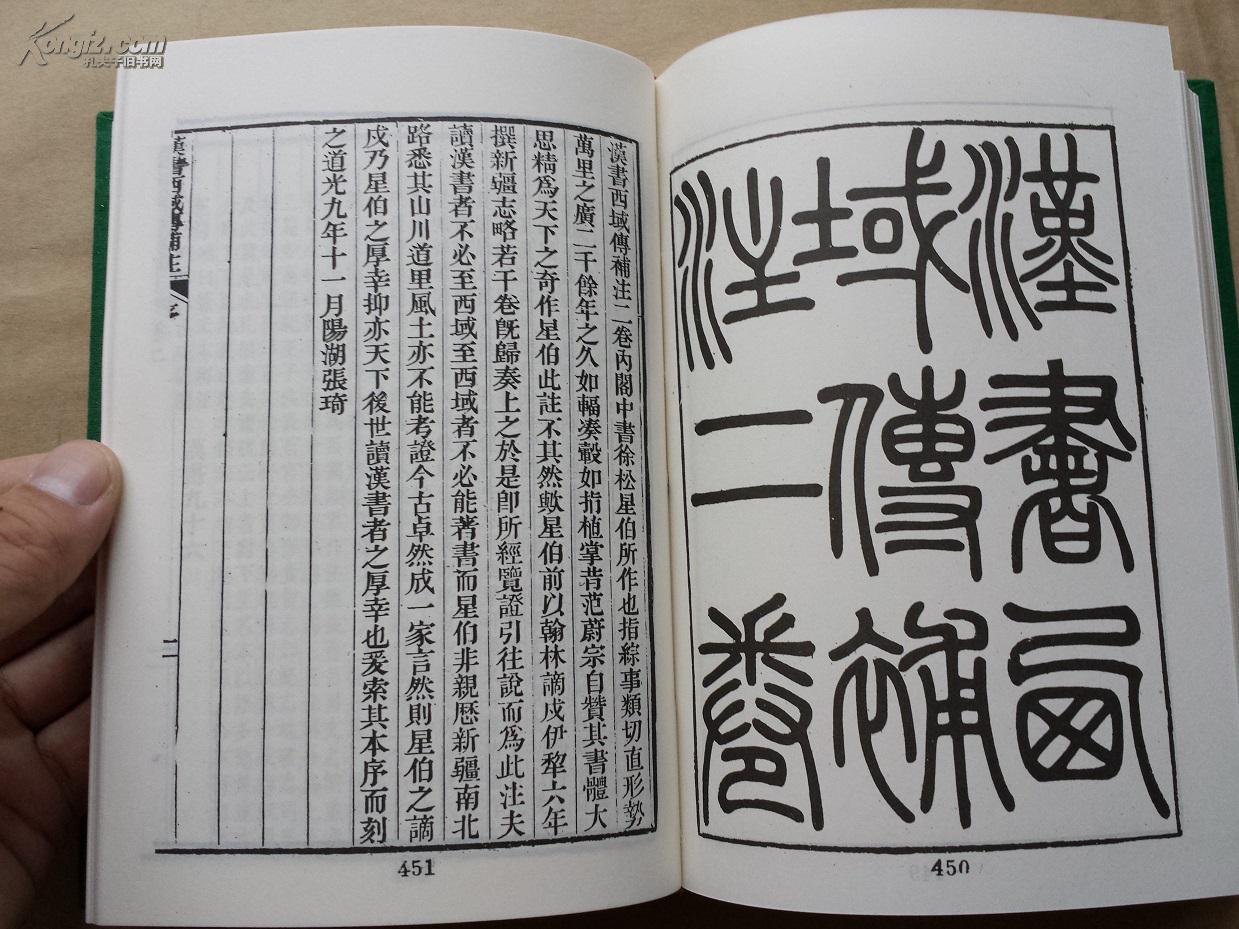 Kongfz.com
孔夫子旧书网
漢書西
域傳補
注二卷
450
漢書西域傳補注二卷內閣中書徐松星伯所作也指綜事類切直形勢
萬里之廣二千餘年之久如輻凑轂如指植掌昔范蔚宗自贊其書體大
思精爲天下之奇作星伯此註不其然歟星伯前以翰林謫戍伊犂六年
撰新疆志略若干卷旣歸奏上之於是卽所經覽證引往說而爲此注夫
讀漢書者不必至西域至西域者不必能著書而星伯非親歷新疆南北
路悉其山川道里風土亦不能考證今古卓然成一家言然則星伯之謫
戍乃星伯之厚幸抑亦天下後世讀漢書者之厚幸也爰索其本序而刻
之道光九年十一月陽湖張琦
漢書西域傳補注
二
451